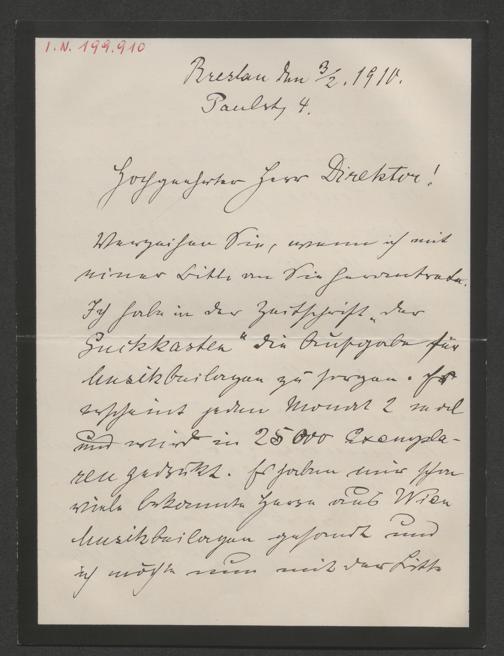 I.N. 199.910
Breslau den 3/2. 1910.
Paulstr 4.
Hochgeehrter Herr Direktor!
Verzeihen Sie, wenn ich mit
einer Bitte an Sie herantrete.
Ich habe in der Zeitschrift „der
Guckkasten" die Aufgabe für
Musikbeilagen zu sorgen. Er
erscheint jeden Monat 2 mal
und wird in 25000 Exempla-
ren gedruckt. Es haben mir schon
viele bekannte Herrn aus Wien
Musikbeilagen gesandt und
ich möchte nun mit der Bitte